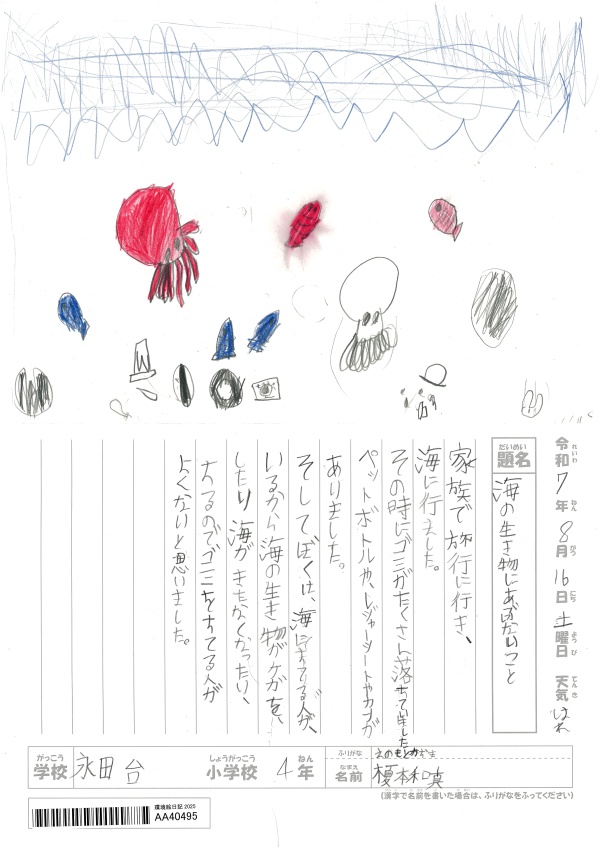 令和7年8月16日土曜日 天気はれ
れいわ ねん がつ にち どようび てんき
だいめい
題名
海の生き物にあぶないこと
家族で旅行に行き、
海に行きました。
その時にゴミがたくさん落ちていました
ペットボトルや、レジャーシートやカゴが
ありました。
そしてぼくは、海にすてる人が、
いるから海の生き物がケガを、
したり海がきたなくなったり、
するのでゴミをすてる人が
よくないと思いました。
がっこう
学校
永田台
しょうがっこう
小学校
4年
ねん
ふりがな
えのもとかずま
なまえ
名前
榎本和真
(漢字で名前を書いた場合は、ふりがなをふってください)
環境絵日記 2025
AA40495